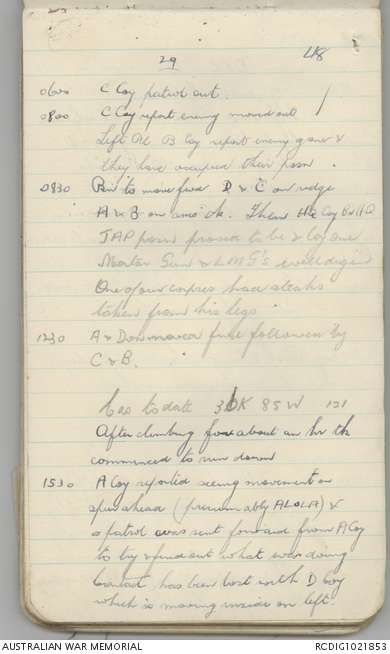 29 48
0600 C Coy patrol out.
0800 C Coy report enemy moved out
Left Pl B Coy report enemy gone &
they have occupied their posn.
0830 Bn to move fwd D & C on ridge
A & B on Then the Coy Bn HQ
JAP posn proved to be a Coy one
Mortar Gun & LMG's well dug in
One of our corpses had steaks
taken from his legs
1230 A & Don moved fwd followed by
C & B.
Cas to date 36K 85W 121
After climbing for about an hr tk
commenced to run down
1530 A Coy reported seeing movement on
spur ahead (presumably ALOLA) &
a patrol was sent forward from A Coy
to try & find out what was doing
Contact has been lost with D Coy
which is moving inside on left.
AUSTRALIAN WAR MEMORIAL
RCDIG1021853